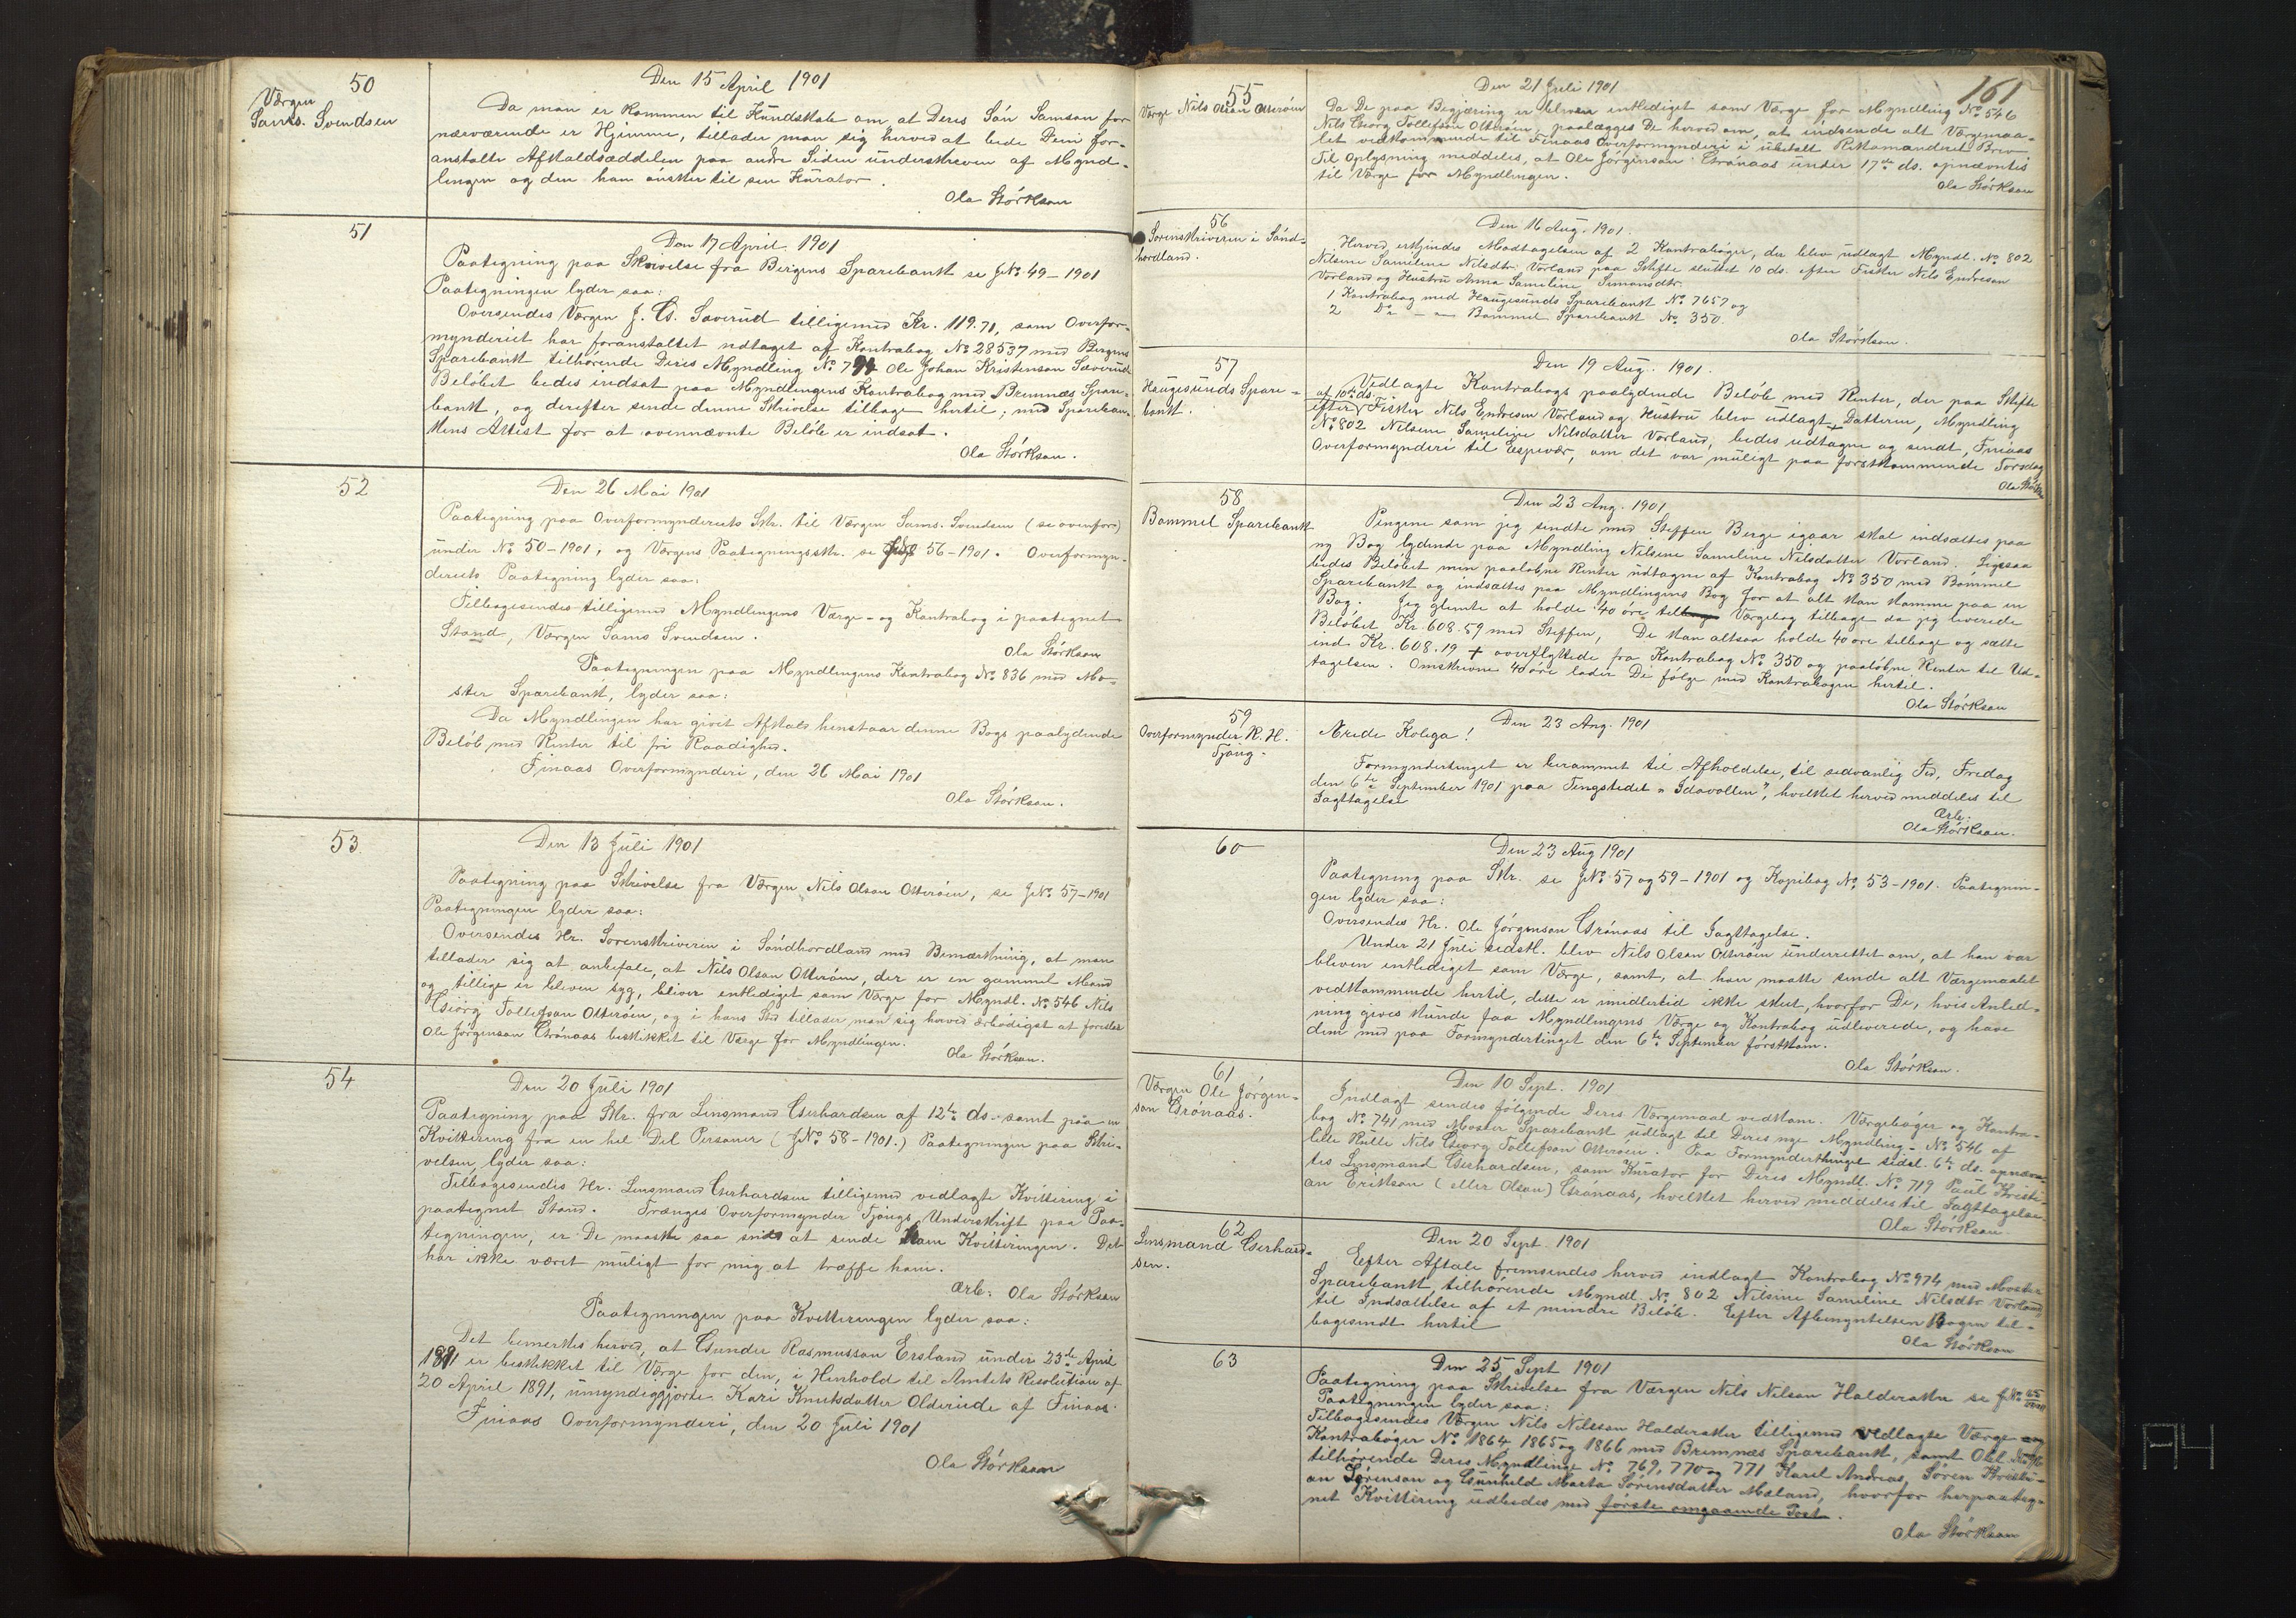 50
Værgen
Sams. Svendsen
Den 15 April 1901
Da man er kommen til Kundskab om at Deres Sön Samson for
nærværende er Hjemme, tillader man sig herved at bede Dem for-
anstalte Afkaldsæddelen paa andre Siden underskreven af Mynd-
lingen og den han önsker til sin Kurator.
Ola Störkson
51
Den 17 April 1901
Paategning paa Skrivelse fra Bergens Sparebank se JNo. 49-1901
Paategningen lyder saa:
Oversendes Værgen J. G. Saverud tilligemed Kr. 119.71, som Overfor-
mynderiet har foranstaltet udtaget af Kontrabog No 28537 med Bergens
Sparebank tilhörende Deres Myndling No Ole Johan Kristenson Sæverud
Belöbet bedes indsat paa Myndlingens Kontrabog med Bremnæs Spare-
bank, og derefter sende denne Skrivelse tilbage hertil, med Spareban-
kens Attest for at ovennævnte Belöb er indsat.
Ola Störkson.
52
Den 26 Mai 1901
Paategning paa Overformynderiets Skr. til Værgen Sams. Svendsen (se ovenfor)
under No 50-1901, og Værgens Paategningsskr. se 56-1901. Overformyn-
deriets Paategning lyder saa:
Tilbagesendes tilligemed Myndlingens Værge- og Kontrabog i paategnet
Stand, Værgen Sams Svendsen.
Ola Störkson
Paategningen paa Myndlingens Kontrabog No 836 med Mo-
ster Sparebank, lyder saa:
Da Myndlingen har givet Afkald henstaar denne Bogs paalydende
Belöb med Renter til fri Raadighed.
Finaas Overformynderi, den 26 Mai 1901
Ola Störkson.
53
Den 13 Juli 1901
Paategning paa Skrivelse fra Værgen Nils Olson Otteröen, se JNo. 57-1901
Paategningen lyder saa:
Oversendes Hr. Sorenskriveren i Söndhordland med Bemærkning, at man
tillader sig at anbefale, at Nils Olson Otteröen, der er en gammel Mand
og tillige er bleven syg, bliver entlediget som Værge for Myndl. No 546 Nils
Georg Tollefson Otteröen, og i hans Sted tillader man sig herved ærbödigst at foreslaa
Ole Jörgenson Grönaas beskikket til Værge for Myndlingen.
Ola Störkson.
54
Den 20 Juli 1901
Paategning paa Skr. fra Lensmand Gerhardsen af 12te ds. samt paa en
Kvittering fra en hel Del Personer (JNo. 58-1901.) Paategningen paa Skri-
velsen lyder saa:
Tilbagesendes Hr. Lensmand Gerhardsen tilligemed vedlagte Kvittering i
paategnet Stand. Trænges Overformynder Tjongs Underskrift paa Paa-
tegningen, er De maaske saa snild at sende ham Kvitteringen. Det
har ikke været muligt for mig at træffe ham.
Ærb: Ola Störkson
Paategningen paa Kvitteringen lyder saa:
Det bemerkes herved, at Gunder Rasmusson Ersland under 23de April
1891 er beskikket til Værge for den, i Henhold til Amtets Resolution af
20 April 1891, umyndiggjorte Kari Knutsdatter Olderiide af Finaas.
Finaas Overformynderi, den 20 Juli 1901
Ola Störkson
161
55
Værge Nils Olson Otteröen
Den 21 Juli 1901
Da De paa Begjæring er bleven entlediget som Værge for Myndling No 546
Nils Georg Tollefson Otteröen, paalægges De herved om, at indsende alt Værgemaa-
let vedkommende til Finaas Overformynderi i ubetalt Rekomanderet Brev
Til Oplysning meddeles, at Ole Jörgenson Grönaas under 17de ds. opnævntes
til Værge for Myndlingen.
Ola Störkson
56
Sorenskriveren i Sönd-
hordland.
Den 16 Aug. 1901.
Herved erkjendes Modtagelsen af 2 Kontraböger, der blev udlagt Myndl. No 802
Nilsine Sameline Nilsdtr. Vorland paa Skifte sluttet 10 ds. efter Fisker Nils Endreson
Vorland og Hustru Anna Sameline Simonsdtr.
1 Kontrabog med Haugesunds Sparebank No 7657 og
2 Do - - Bömmel Sparebank No 350
Ola Störkson.
57
Haugesunds Spare-
bank.
Den 19 Aug. 1901.
Vedlagte Kontrabogs paalydende Belöb med Renter, der paa Skifte
af 10de ds.
efter Fisker Nils Endresen Vorland og Hustru blev udlagt Datteren, Myndling
No 802 Nilsine Sameline Nilsdatter Vorland, bedes udtagne og sendt, Finaas
Overformynderi til Espevær, om det var muligt paa förstkommende Torsdag
Ola Störks
58
Bömmel Sparebank
Den 23 Aug. 1901
Pengene som jeg sendte med Steffen Berge igaar skal indsættes paa
ny Bog lydende paa Myndling Nilsine Sameline Nilsdatter Vorland. Ligesaa
bedes Belöbet men paalöbne Renter udtagne af Kontrabog No 350 med Bömmel
Sparebank og indsættes paa Myndlingens Bog for at alt kan komme paa en
Bog. Jeg glemte at holde 40 öre til Værgebog tilbage da jeg leverede
Belöbet Kr. 608.59 med Steffen, De kan altsaa holde 40 öre tilbage og sætte
ind Kr. 608.19 + overflyttede fra Kontrabog No 350 og paalöbne Renter til Ud-
tagelsen. Omskrevne 40 öre lader De fölge med Kontrabogen hertil.
Ola Störkson
59
Overformynder K. H.
Tjong.
Den 23 Aug. 1901
Ærede Kolega!
Formyndertinget er berammet til Afholdelse, til sedvanlig Tid, Fredag
den 6te September 1901 paa Tingstedet "Idavollen", hvilket herved meddeles til
Iagttagelse
Ærb:
Ola Störkson.
60
Den 23 Aug 1901
Paategning paa Skr. se JNo. 57 og 59-1901 og Kopibog No. 53-1901. Paategnin-
gen lyder saa:
Oversendes Hr. Ole Jörgenson Grönaas til Iagttagelse.
Under 21 Juli sidstl. blev Nils Olson Otteröen underrettet om, at han var
bleven entlediget som Værge, samt, at han maatte sende alt Værgemaalet
vedkommende hertil, dette er imidlertid ikke skeet, hvorfor De, hvis Anled-
ning gives kunde faa Myndlingens Værge og Kontrabog udleverede, og have
dem med paa Formyndertinget den 6te September förstkom.
Ola Störkson.
61
Værgen Ole Jörgen-
son Grönaas.
Den 10 Sept. 1901
Indlagt sendes fölgende Deres Værgemaal vedkom. Værgeböger og Kontra-
bog No 741 med Moster Sparebank udlagt til Deres nye Myndling - No 546 af
lille Rulle Nils Georg Tollefson Otteröen. Paa Formynderthinget sidstl. 6te ds. opnævn-
tes Lensmand Gerhardsen, som Kurator for Deres Myndl. No 719 Paul Kristi-
an Erikson (eller Olson) Grönaas, hvilket herved meddeles til Iagttagelse.
Ola Störkson.
62
Lensmand Gerhard-
sen.
Den 20 Sept. 1901
Efter Aftale fremsendes herved indlagt Kontrabog No 974 med Moster
Sparebank, tilhörende Myndl. No 802 Nilsine Sameline Nilsdtr Vorland
til Indsættelse af et mindre Belöb. Efter Afbenyttelsen Bogen til-
bagesendt hertil
Ola Störkson
63
Den 25 Sept 1901
Paategning paa Skrivelse fra Værgen Nils Nilson Halderaker se
Paategningen lyder saa:
Tilbagesendes Værgen Nils Nilsson Halderaker tilligemed vedlagte Værge og
Kontraböger No 1864 1865 og 1866 med Bremnæs Sparebank, samt Obl.
tilhörende Deres Myndlinge No 769, 770 og 771 Karel Andreas, Sören Kristi-
an Sörenson og Gunhild Marta Sörensdatter Mæland, hvorfor herpaateg-
net Kvittering udbedes med förste omgaaende Post.
Ola Störkson